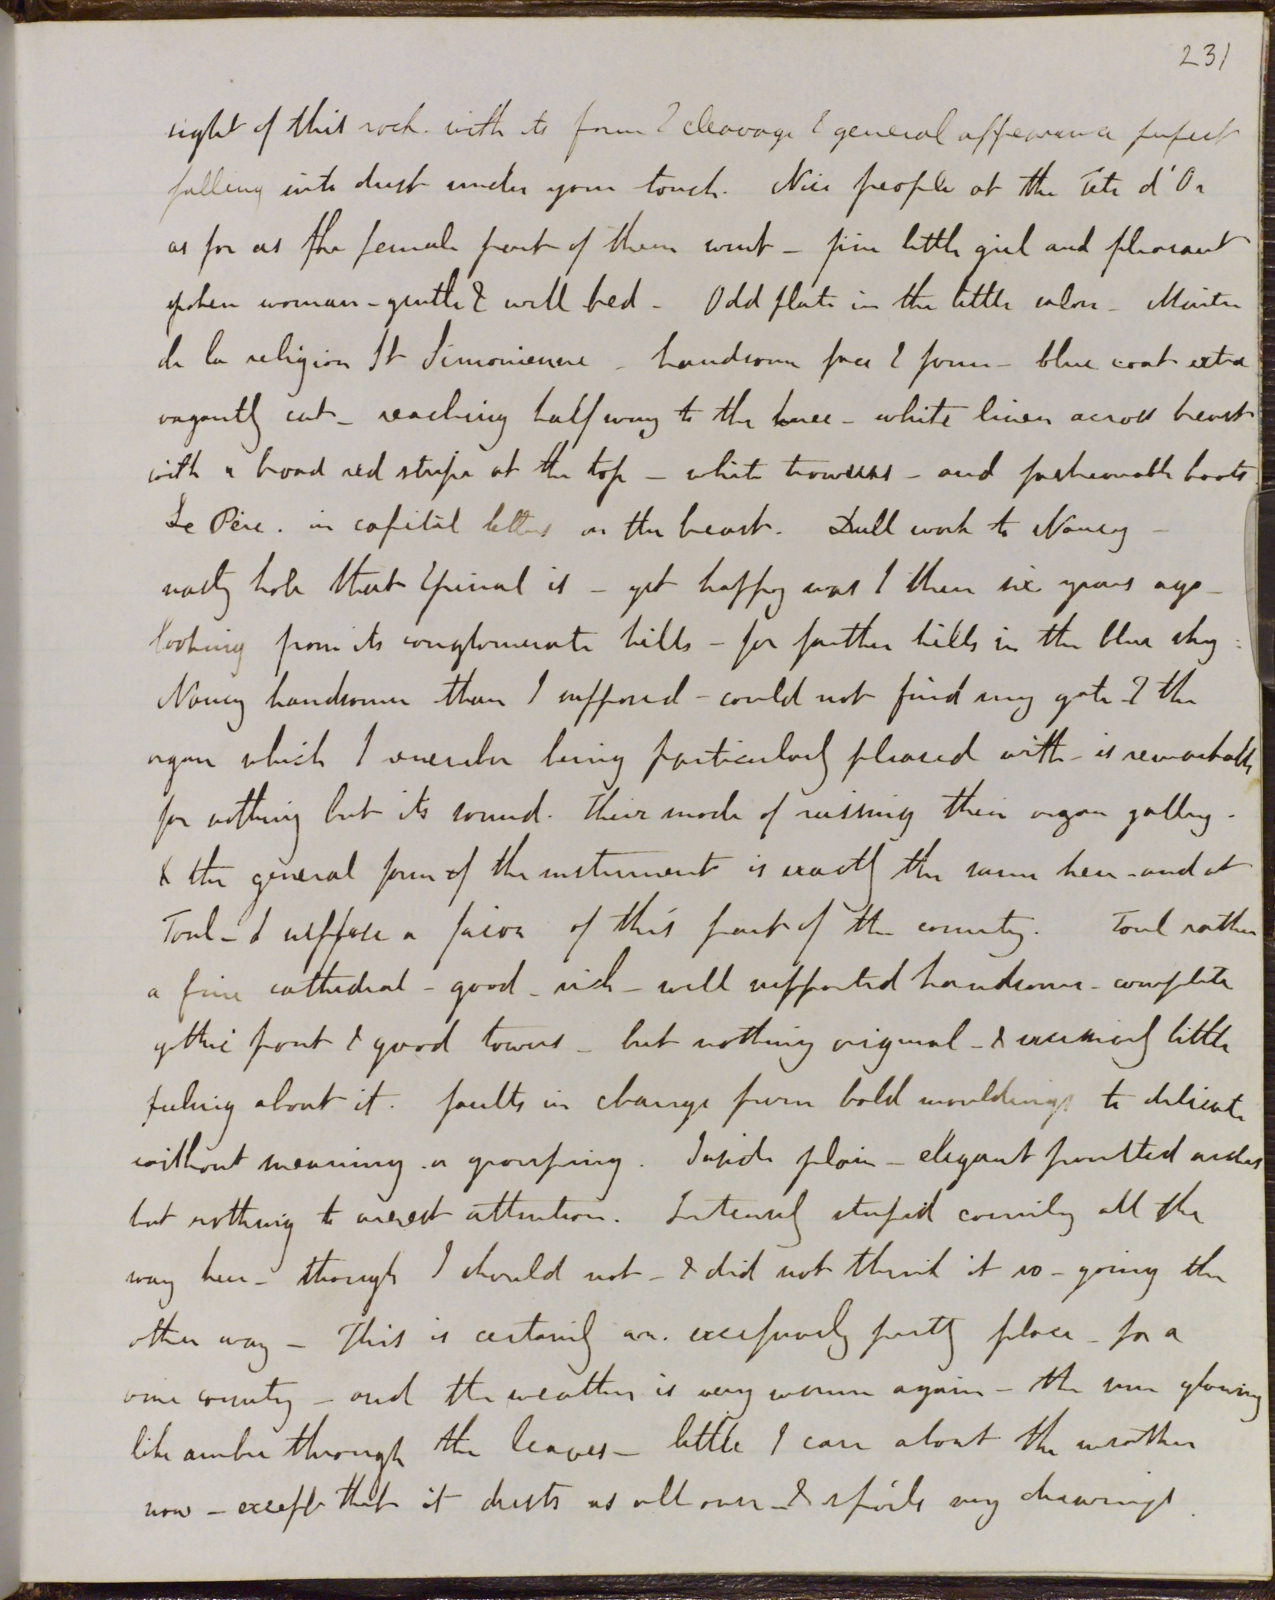 231
sight of this rock. with its form & cleavage & general appearance perfect
falling into dust under your touch. Nice people at the Tete d'Or
as far as the female part of them went - fine little girl and pleasant
spoken woman - gentle & well bred - Odd plate in the little salon - Maitre
de la religion St Simonienne - handsome face & form - blue coat extra
vagantly cut - reaching half way to the knee - white linen across breast
with a broad red stripe at the top - white trowsers - and fashionable boots
Le Père. in capital letters on the breast. Dull work to Nancy -
nasty hole that Epinal is - yet happy was I there six years ago -
looking from its conglomerate hills - for farther hills in the blue sky :
Nancy handsomer than I supposed - could not find my gate & the
organ which I remember being particularly pleased with - is remarkable
for nothing but its sound. Their mode of raising their organ gallery -
& the general form of the instrument is exactly the same here - and at
Toul - I suppose a façon of this part of the country. Toul rather
a fine cathedral - good - rich - well supported handsome - complete
gothic front & good towers - but nothing original - & exceedingly little
feeling about it. faults in change from bold mouldings to delicate
without meaning or grouping. Inside plain - elegant pointed arches
but nothing to arrest attention. Intensely stupid country all the
way here - though I should not - & did not think it so - going the
other way - This is certainly an. excessively pretty place - for a
vine country - and the weather is very warm again - the sun glowing
like amber through the leaves - little I care about the weather
now - except that it dusts us all over - & spoils my drawings.